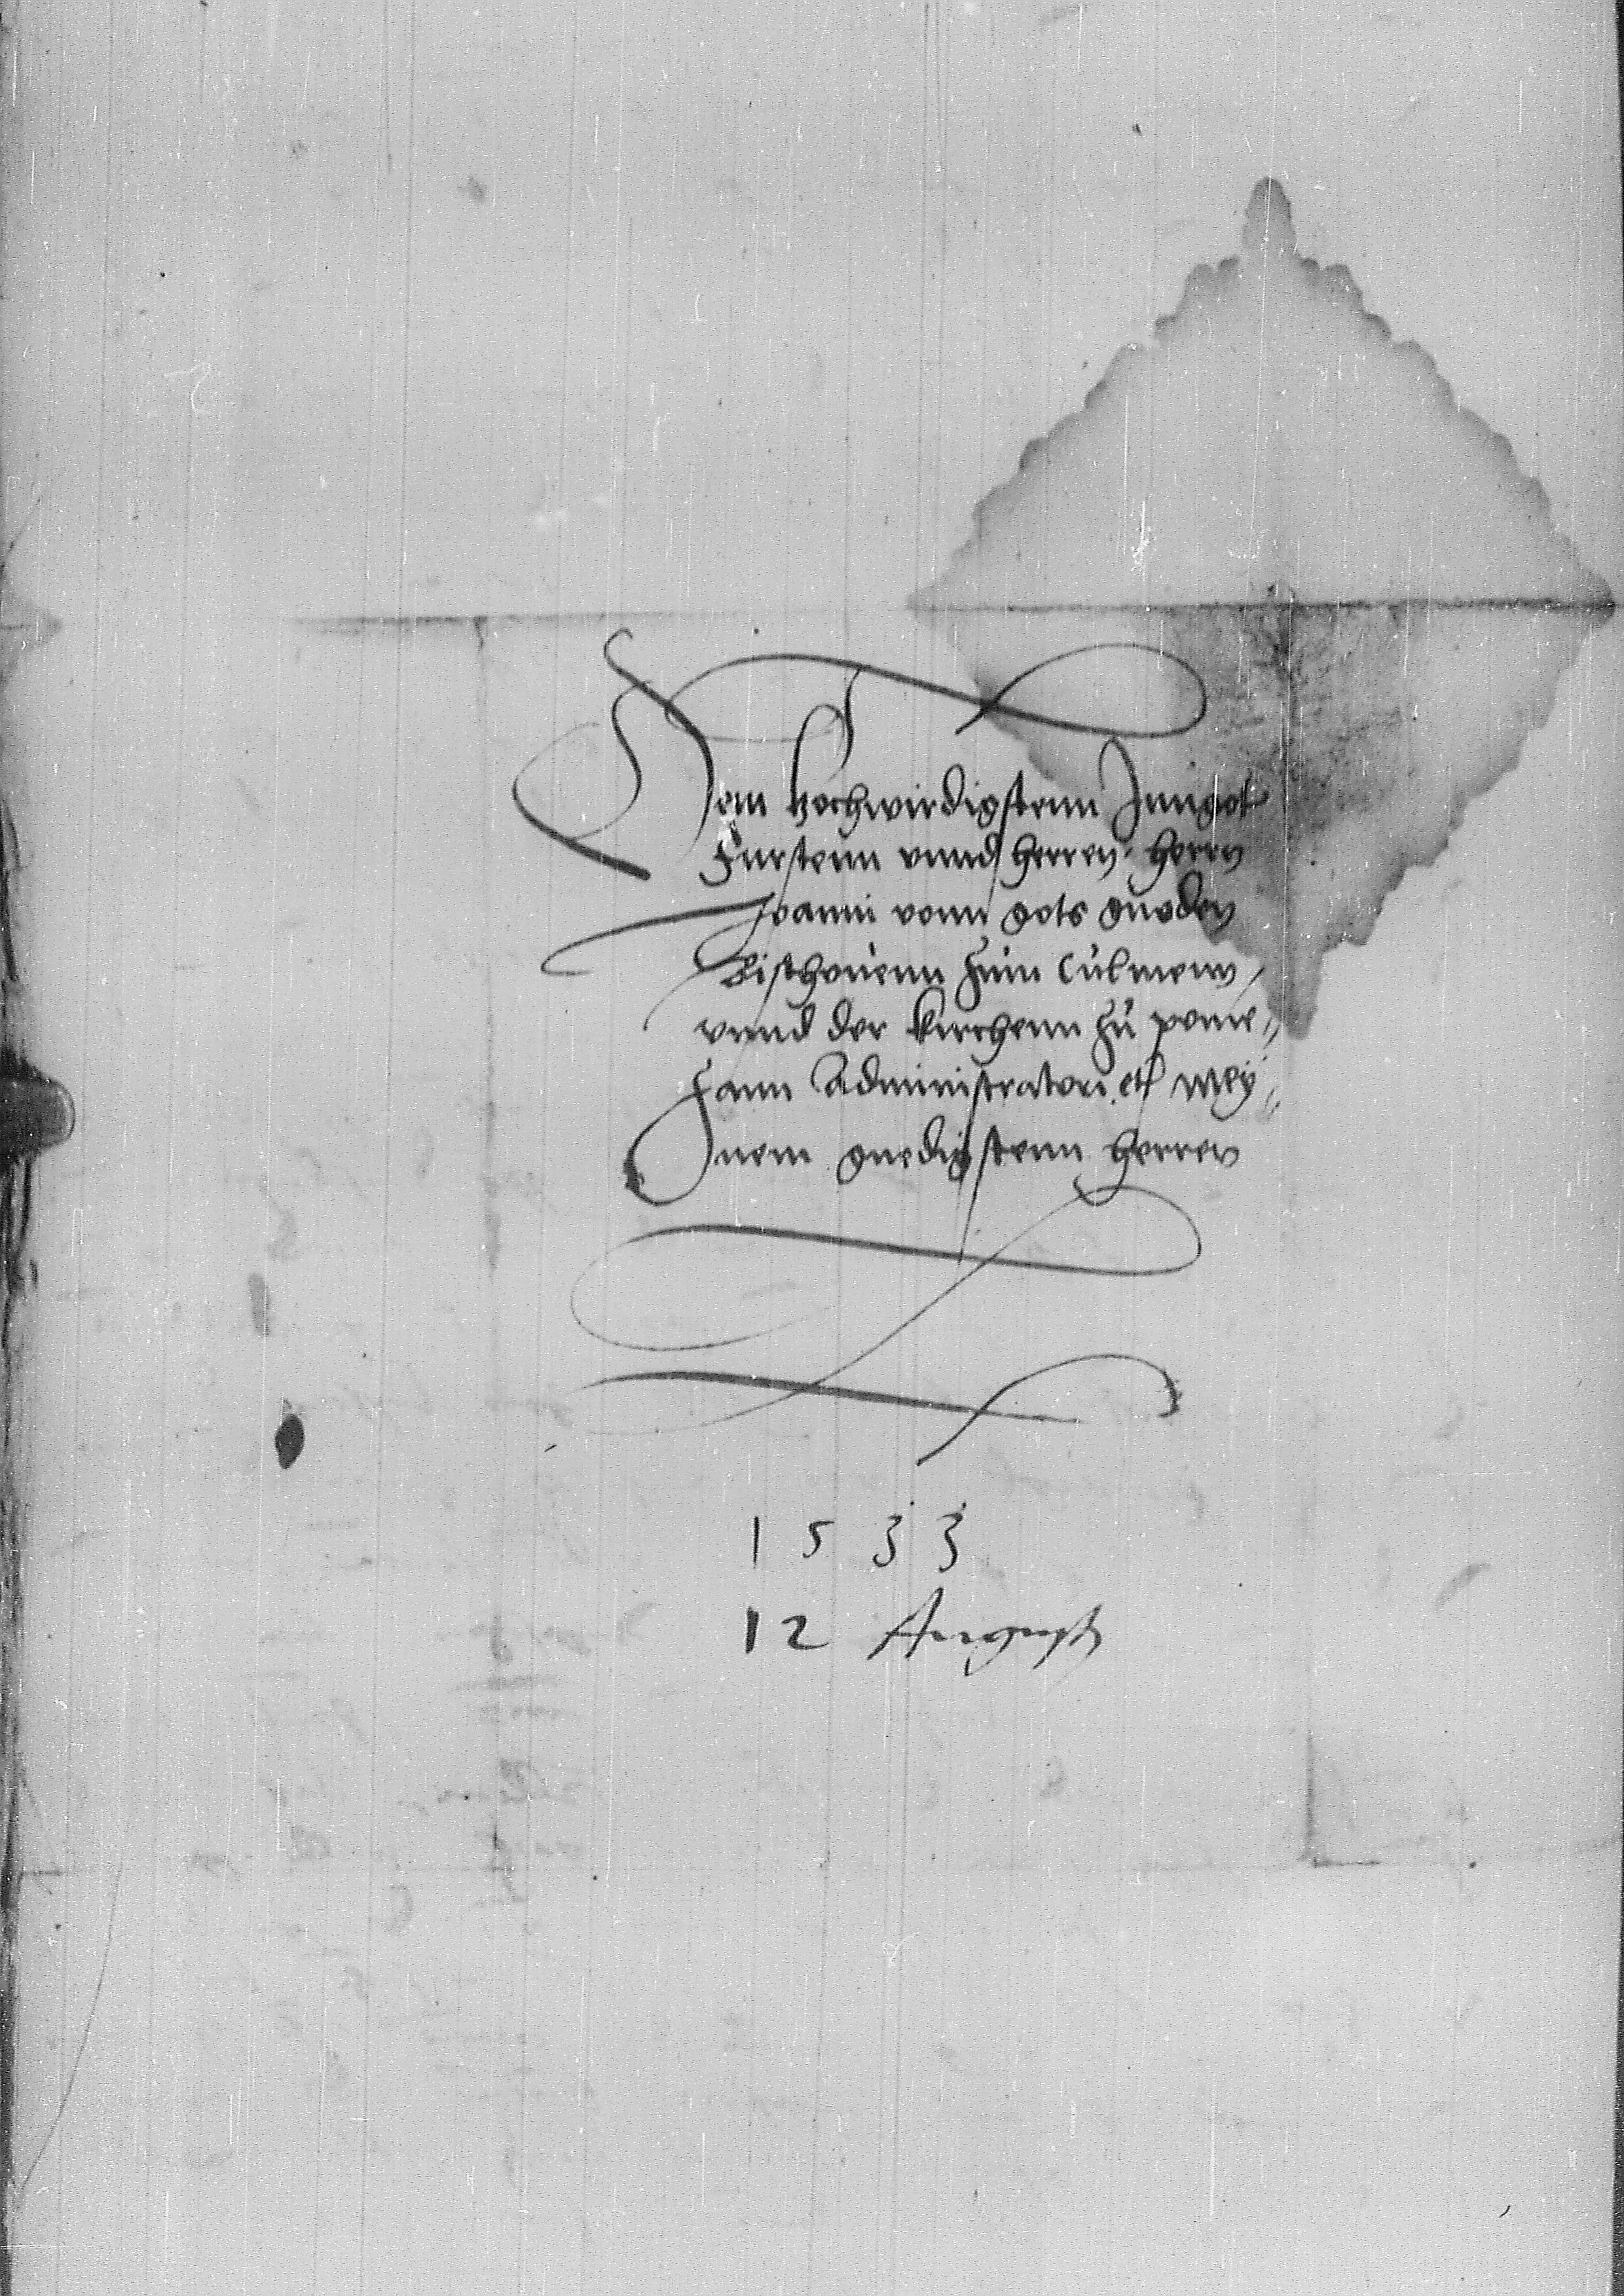 Dem hochwirdigstenn Inngot
Furstenn vnnd herren, hern
Joanni vonn gots gnaden
Bischouenn zum Culmenn
vnnd der kirchenn zu pome//
sann Administratori etc mey//
nem gnedigstenn herren
1533
12 August